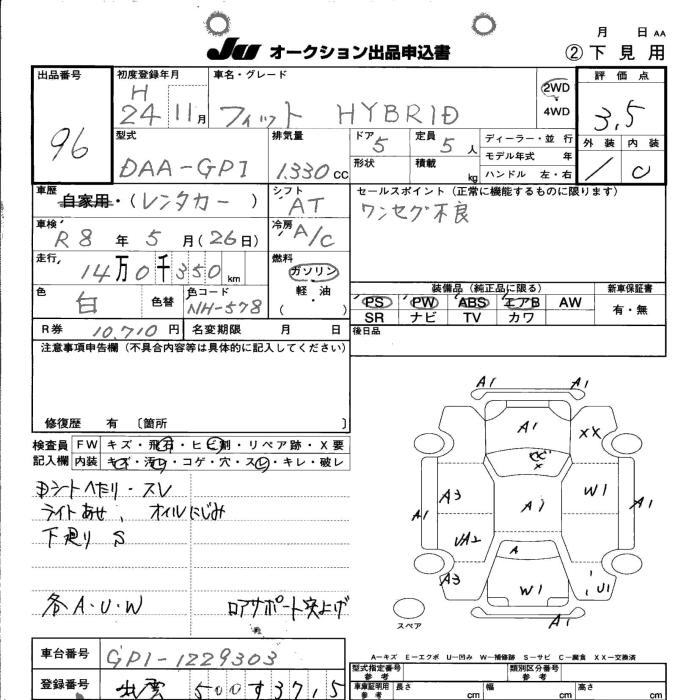 月 日 AA
JU オークション出品申込書 ②下見用
出品番号 初度登録年月 車名・グレード 2WD 評価点
96 H 24 11月 フィット HYBRID 4WD 3.5
型式 排気量 ドア 5 定員 5人 ディーラー・並行 外装 内装
DAA-GP1 1.330cc 形状 積載 kg モデル年式 年
ハンドル 左・右 / C
車歴 自家用・(レンタカー) シフト AT セールスポイント(正常に機能するものに限ります)
車検 R8年5月(26日) 冷房 A/C ワンセグ不良
走行 14万0千350km 燃料 ガソリン
軽油
( )
色 白 色替 色コード NH-578 装備品(純正品に限る) 新車保証書
PS PW ABS エアB AW 有・無
SR ナビ TV カワ
R券 10,710円 名変期限 月 日 後日品
注意事項申告欄(不具合内容等は具体的に記入してください)
修復歴 有 〔箇所 〕
検査員 FW キズ・飛石・ヒビ割・リペア跡・X要
記入欄 内装 キズ・汚レ・コゲ・穴・スレ・キレ・破レ
ライトあせ、オイルにじみ
下廻り S
各A・U・W ロアサポート突上げ
A1 A1
A1 XX
X
A3 A1 W1
A1 A1
UA2 A
A3 W1 U1
A1
スペア
A-キズ E-エクボ U-凹み W-補修跡 S-サビ C-腐食 XX-交換済
車台番号 GP1-1229303 型式指定番号 参考 類別区分番号 参考
登録番号 出雲 500 す 3715 車庫証明用 参考 長さ cm 幅 cm 高さ cm